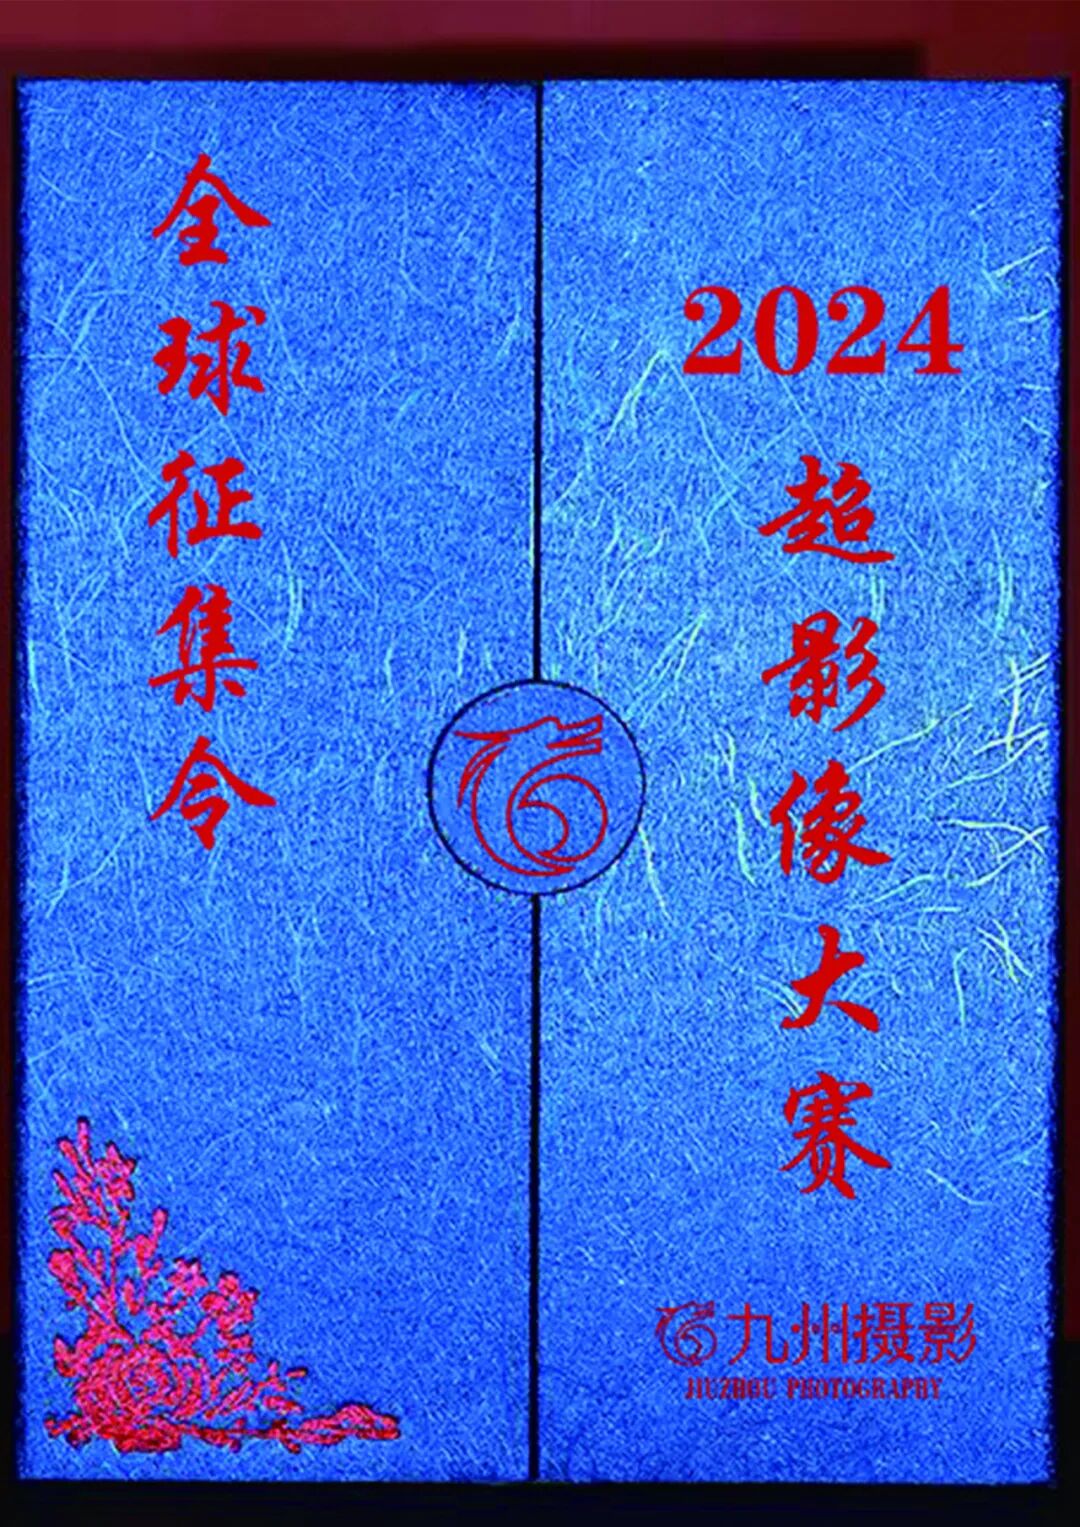 2024
超影像大赛
全球征集令
九州摄影
JIUZHOU PHOTOGRAPHY